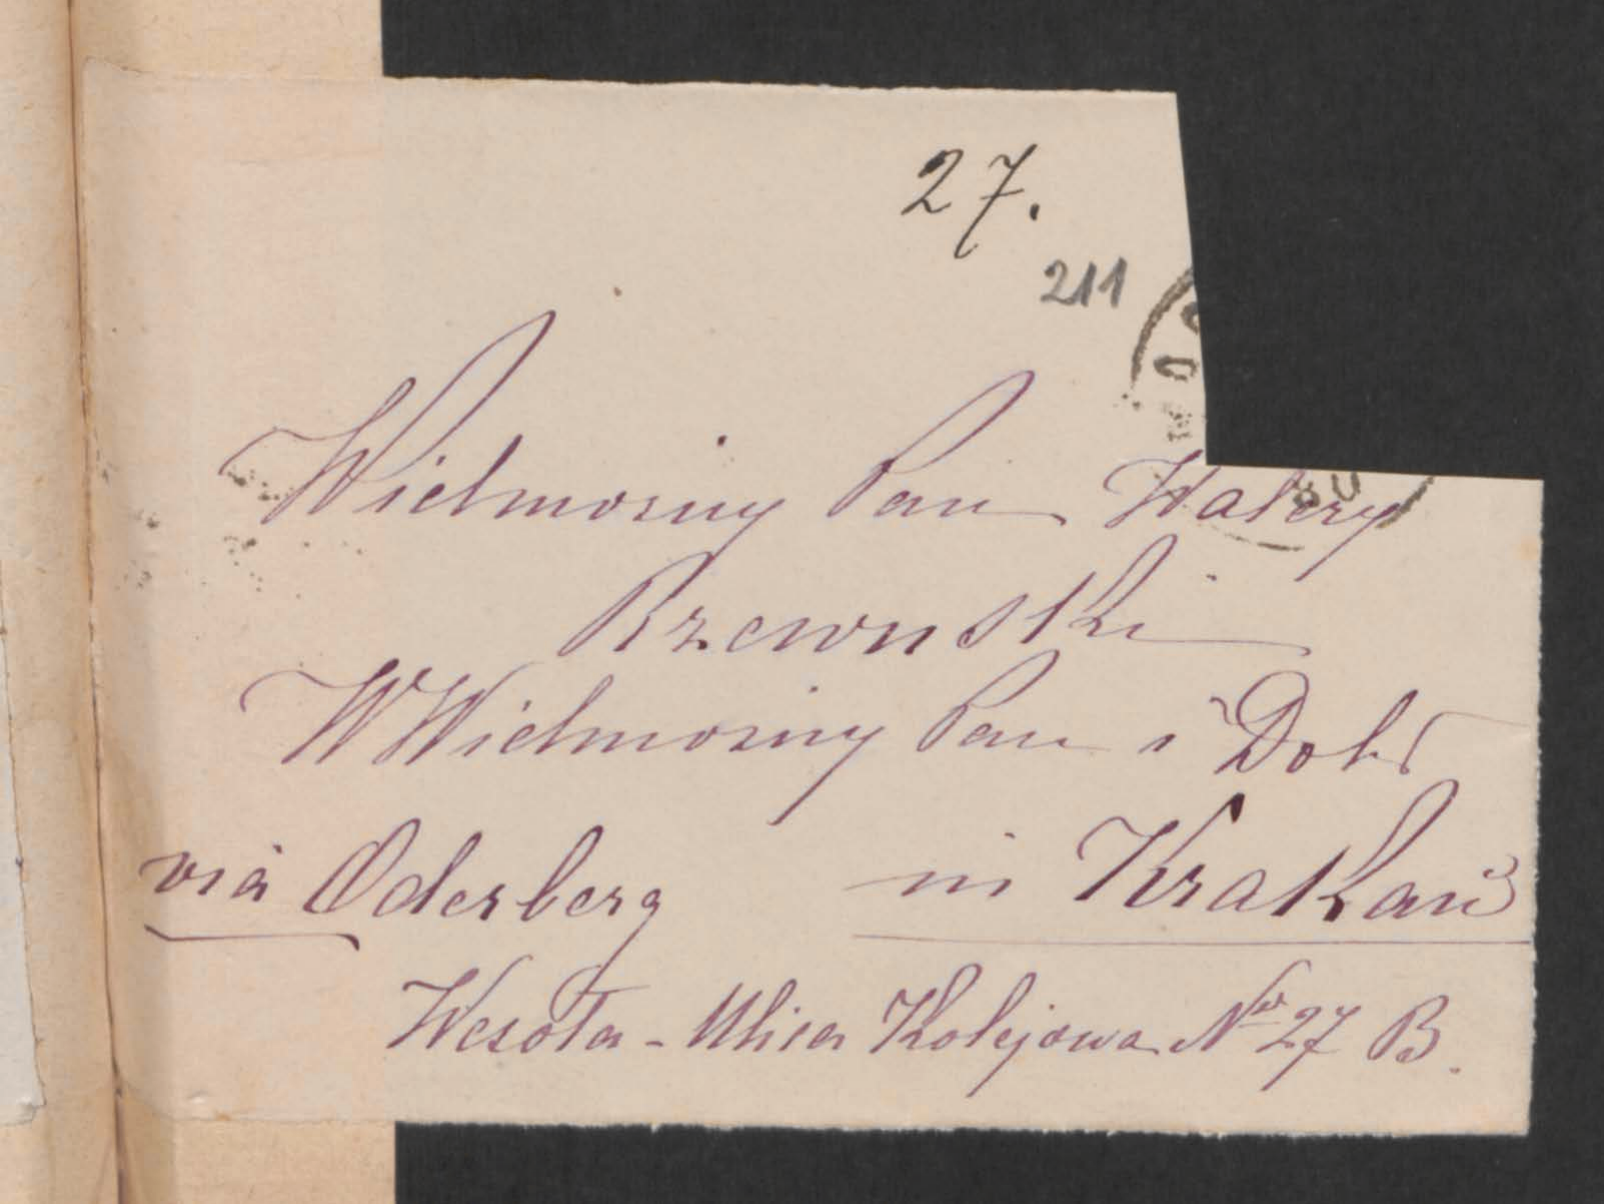 27.
211
Wielmożny Pan Walery
Rzewuski
WWielmożny Pan i Dobr
via Oderberg in Krakau
Wesoła - Ulica Kolejowa No 27 B.